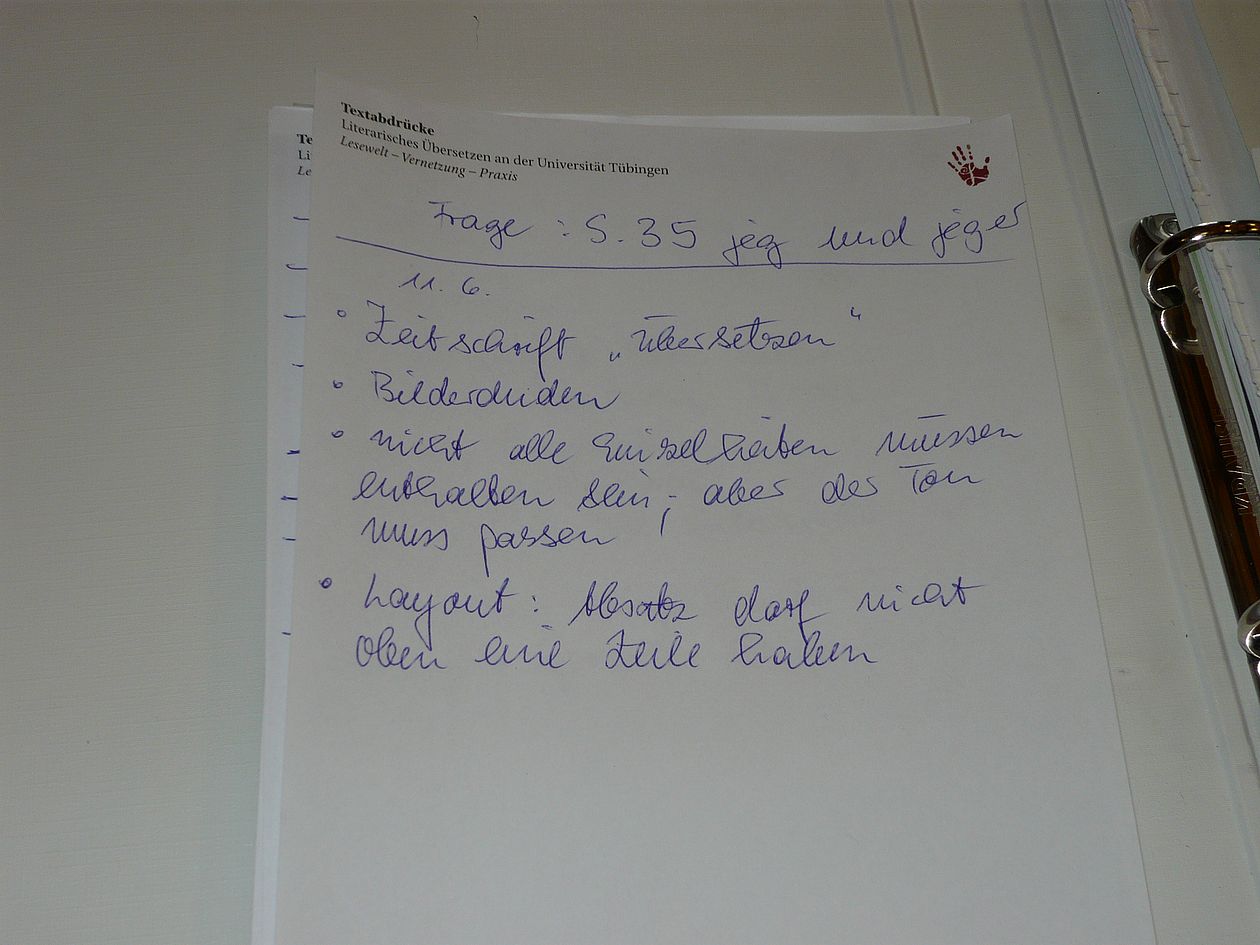 Textabdrücke
Literarisches Übersetzen an der Universität Tübingen
Lesewelt – Vernetzung – Praxis
Te
Li
Le
Frage : S. 35 jeg und jeger
11. 6.
• Zeitschrift „übersetzen“
• Bilderduden
• nicht alle Einzelheiten müssen
enthalten sein, aber der Ton
muss passen
• Layout: Absatz darf nicht
oben eine Zeile haben